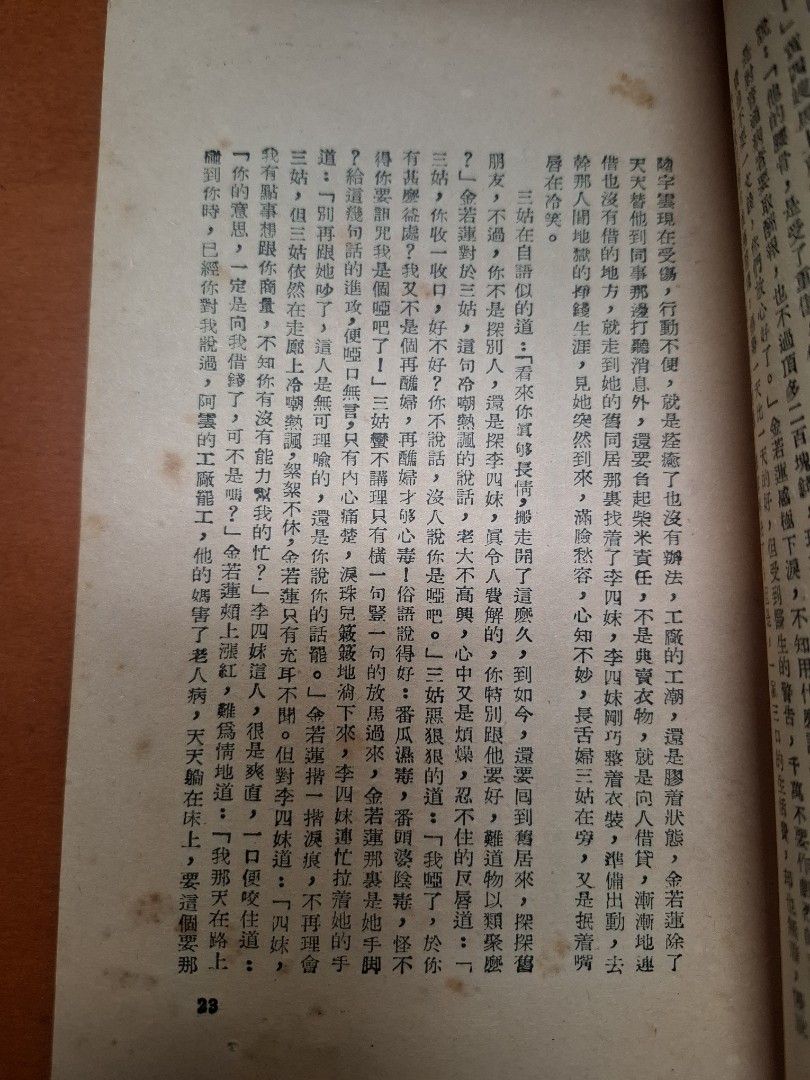 陸宇雲現在受傷，行動不便，就是痊癒了也沒有辦法，工廠的工潮，還是膠着狀態，金若蓮除了
天天替他到同事那邊打聽消息外，還要負起柴米責任，不是典賣衣物，就是向人借貸，漸漸地連
借也沒有借的地方，就走到她的舊同居那裏找着了李四妹，李四妹剛巧整着衣裝，準備出動，去
幹那人間地獄的掙錢生涯，見她突然到來，滿臉愁容，心知不妙，長舌婦三姑在旁，又是抿着嘴
唇在冷笑。
三姑在自語似的道：「看來你眞够長情，搬走開了這麼久，到如今，還要囘到舊居來，探探舊
朋友，不過，你不是探別人，還是探李四妹，眞令人費解的，你特別跟他要好，難道物以類聚麼
？」金若蓮對於三姑，這句冷嘲熱諷的說話，老大不高興，心中又是煩燥，忍不住的反唇道：「
三姑，你收一收口，好不好？你不說話，沒人說你是啞吧。」三姑惡狠狠的道：「我啞了，於你
有甚麼益處？我又不是個再醮婦，再醮婦才够心毒！俗語說得好：番瓜濕毒，番頭婆陰毒，怪不
得你要詛咒我是個啞吧了！」三姑蠻不講理只有橫一句豎一句的放馬過來，金若蓮那裏是她手脚
？給這幾句話的進攻，便啞口無言，只有內心痛楚，淚珠兒簌簌地淌下來，李四妹連忙拉着她的手
道：「別再跟她吵了，這人是無可理喻的，還是你說你的話罷。」金若蓮揩一揩淚痕，不再理會
三姑，但三姑依然在走廊上冷嘲熱諷，絮絮不休，金若蓮只有充耳不聞。但對李四妹道：「四妹，
我有點事想跟你商量，不知你有沒有能力幫我的忙？」李四妹這人，很是爽直，一口便咬住道：
「你的意思，一定是向我借錢了，可不是嗎？」金若蓮頰上漲紅，難爲情地道：「我那天在路上
碰到你時，已經你對我說過，阿雲的工廠罷工，他的媽害了老人病，天天躺在床上，要這個要那
23